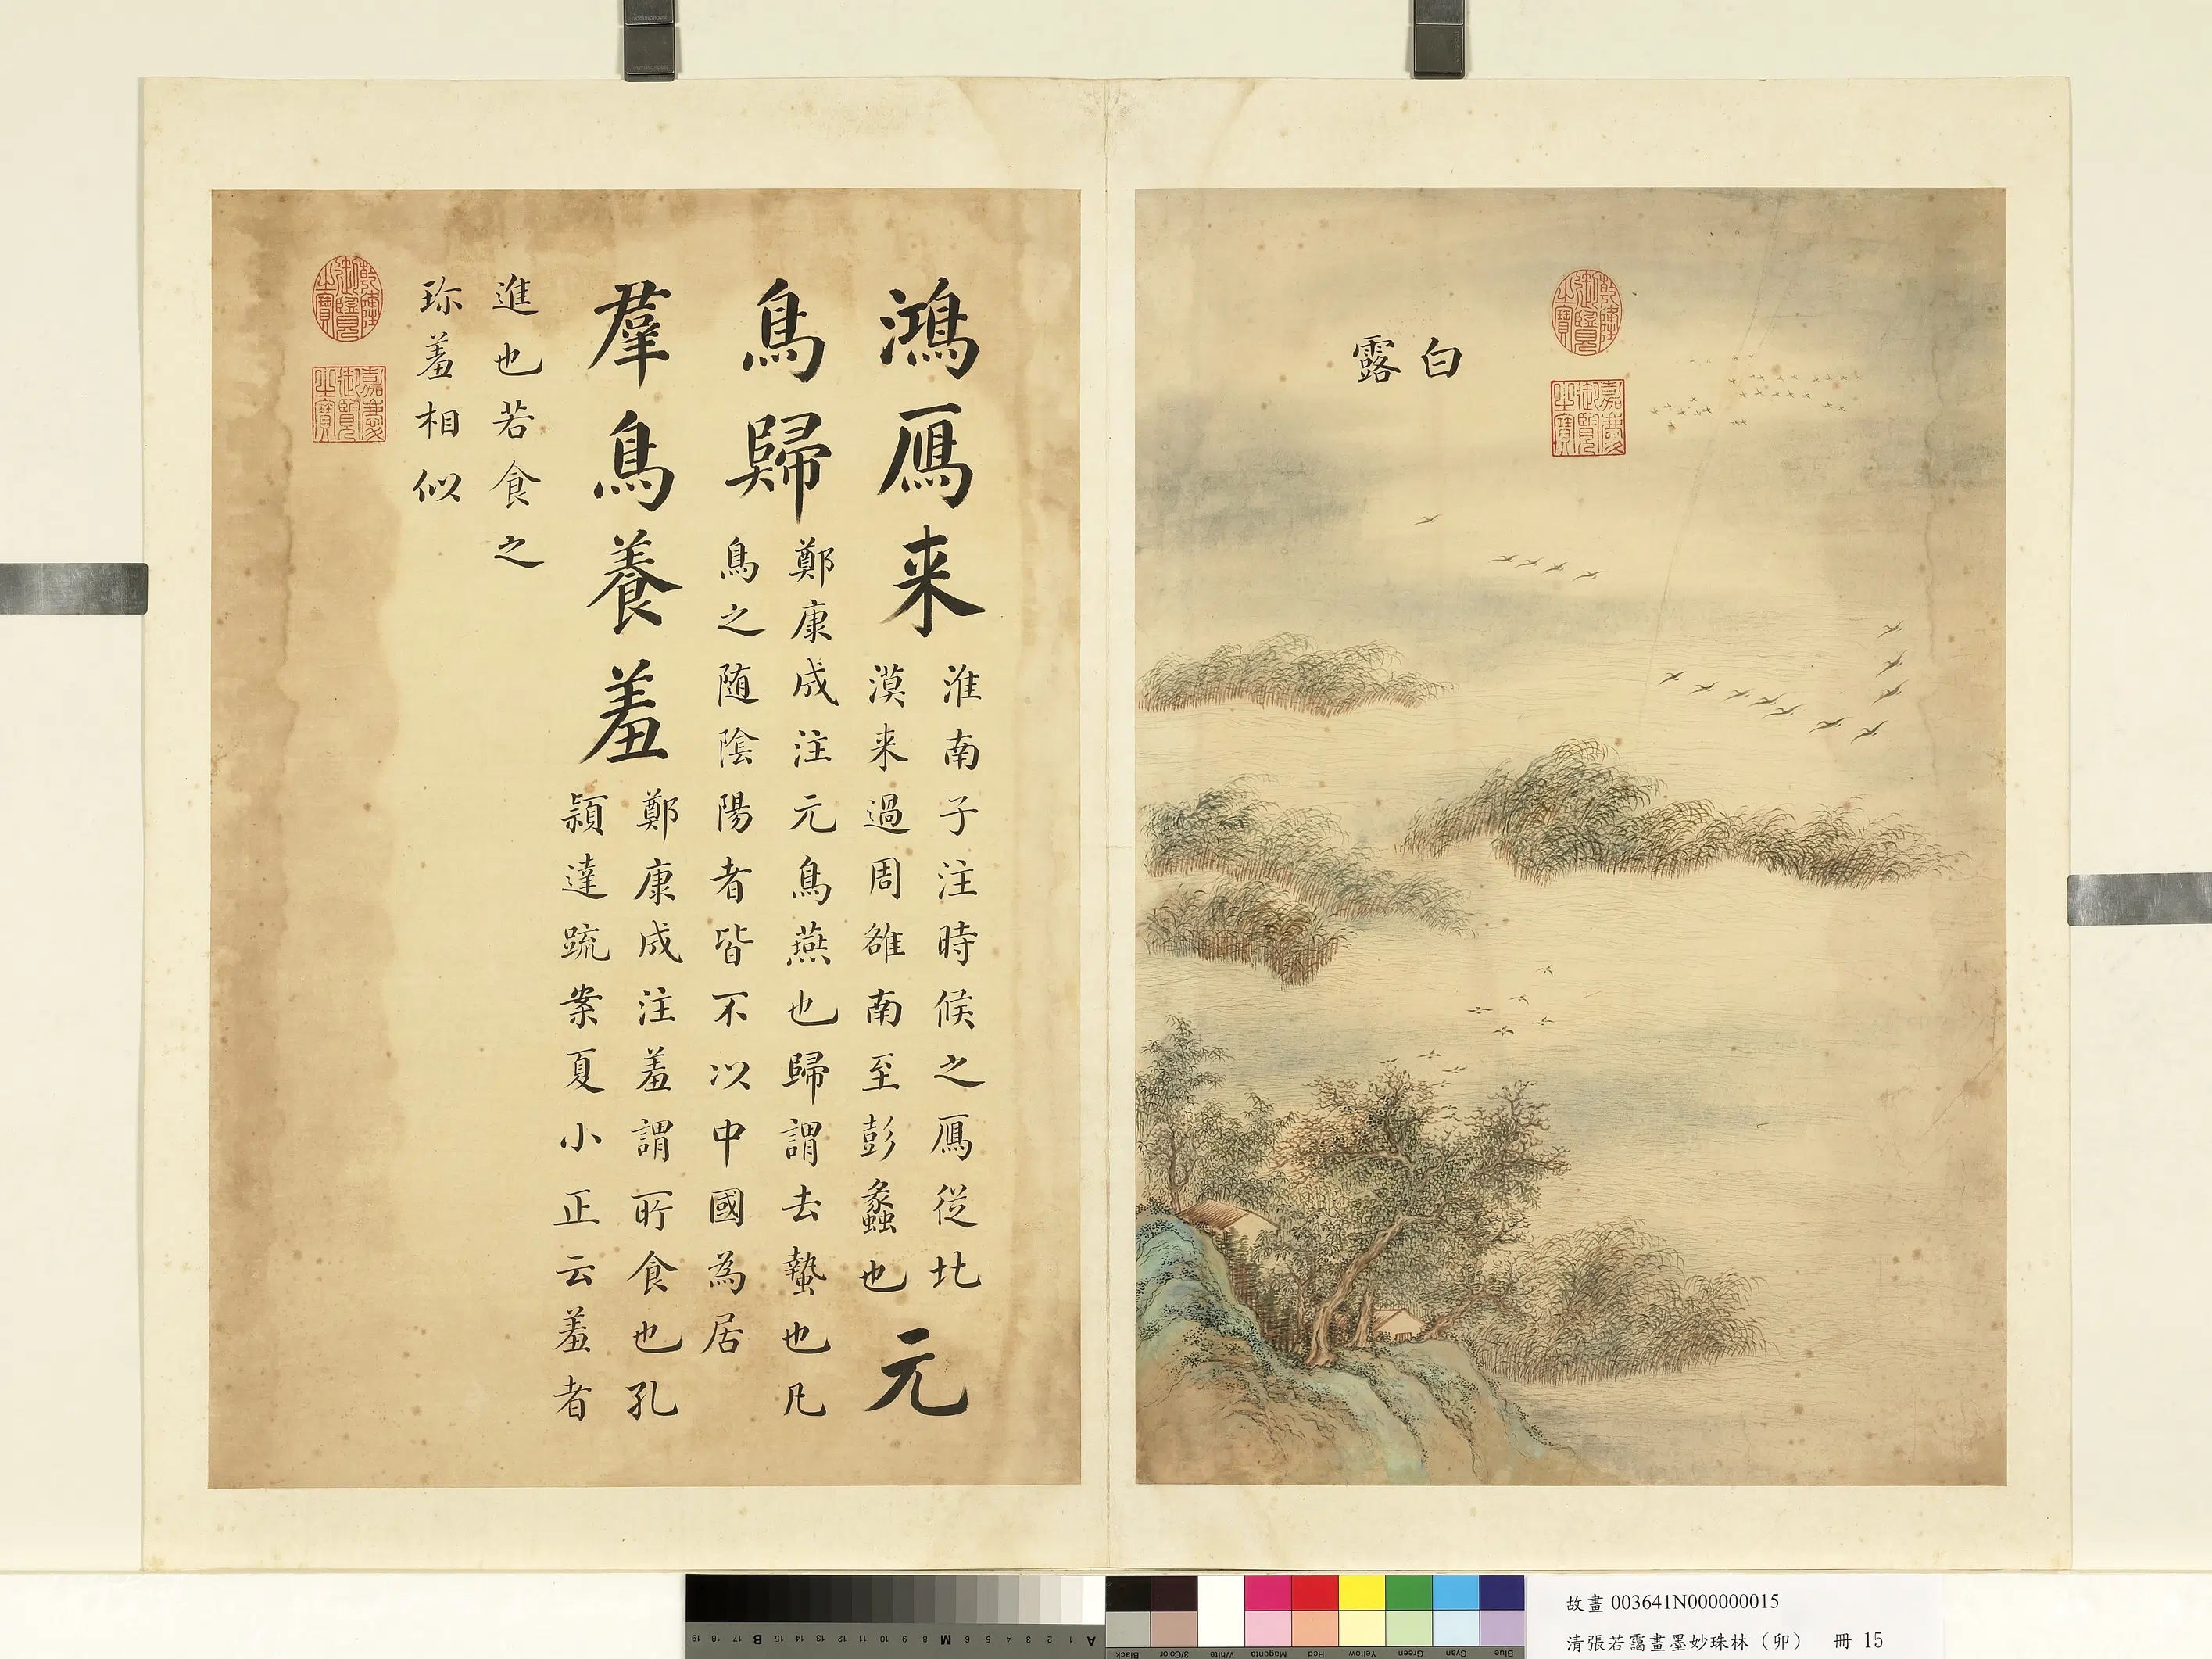 白
露
乾隆御覽之寶
嘉慶御覽之寶
鴻鴈来
淮南子注時候之鴈從北
漠来過周雒南至彭蠡也
元
鳥歸
鄭康成注元鳥燕也歸謂去蟄也凡
鳥之随陰陽者皆不以中國為居
羣鳥養羞
鄭康成注羞謂所食也孔
穎達䟽案夏小正云羞者
進也若食之
珎羞相似
乾隆御覽之寶
嘉慶御覽之寶
19 18 17 B 15 14 13 12 11 10 9 8 M 6 5 4 3 2 1 A
Black 3/Color White Magenta Red Yellow Green Cyan Blue
故畫 003641N000000015
清張若靄畫墨妙珠林（卯） 冊 15